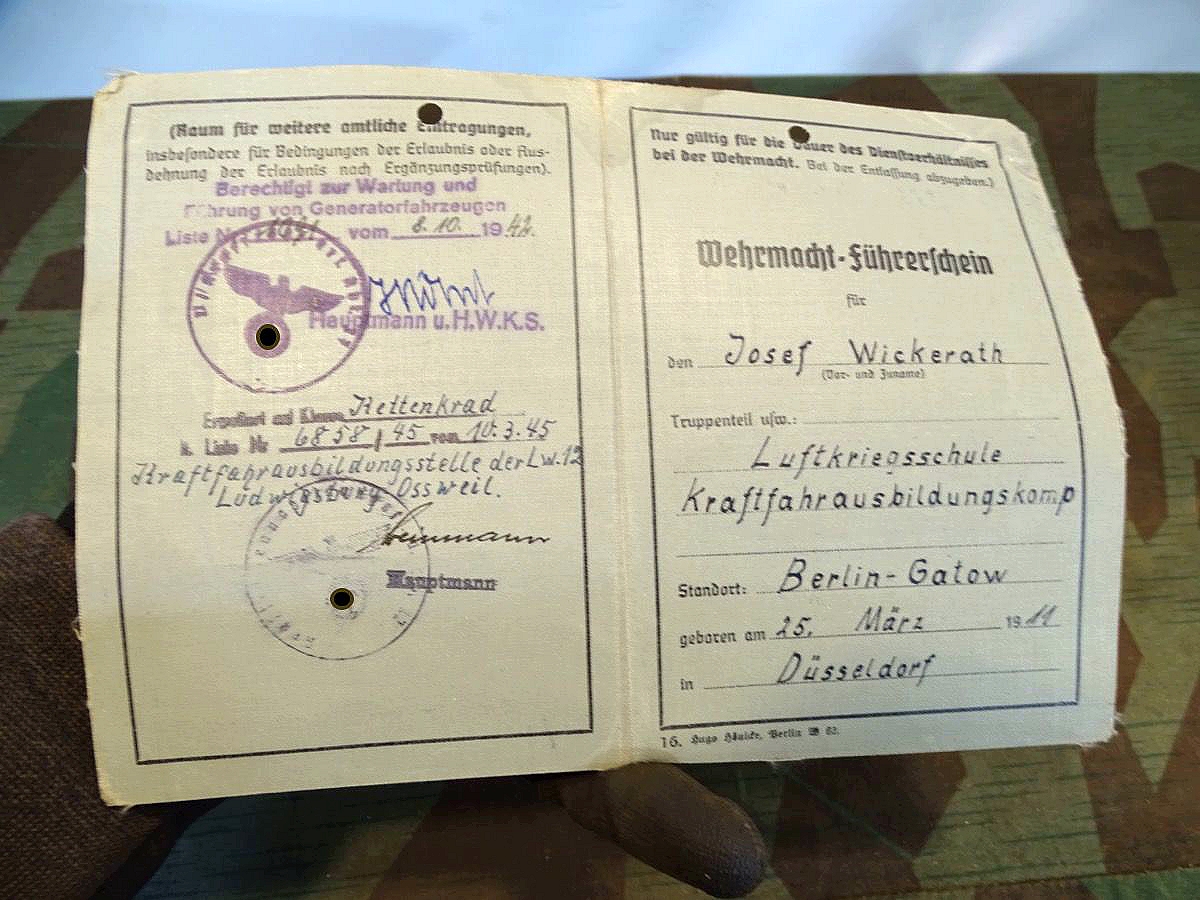 (Raum für weitere amtliche Eintragungen,
insbesondere für Bedingungen der Erlaubnis oder Aus-
dehnung der Erlaubnis nach Ergänzungsprüfungen).
Berechtigt zur Wartung und
Führung von Generatorfahrzeugen
Liste vom 8.10. 1942.
Hauptmann u.H.W.K.S.
Kettenkrad
Liste Nr 6858/45 vom 10.3.45
Kraftfahrausbildungsstelle der Lw.12
Ludwigsburg Ossweil.
Hauptmann
Nur gültig für die Dauer des Dienstverhältnisses
bei der Wehrmacht. Bei der Entlassung abzugeben.)
Wehrmacht-Führerschein
für
den Josef Wickerath
(Vor- und Zuname)
Truppenteil usw.:
Luftkriegsschule
Kraftfahrausbildungskomp
Standort: Berlin-Gatow
geboren am 25. März 1911
in Düsseldorf
16. Hugo Berlin